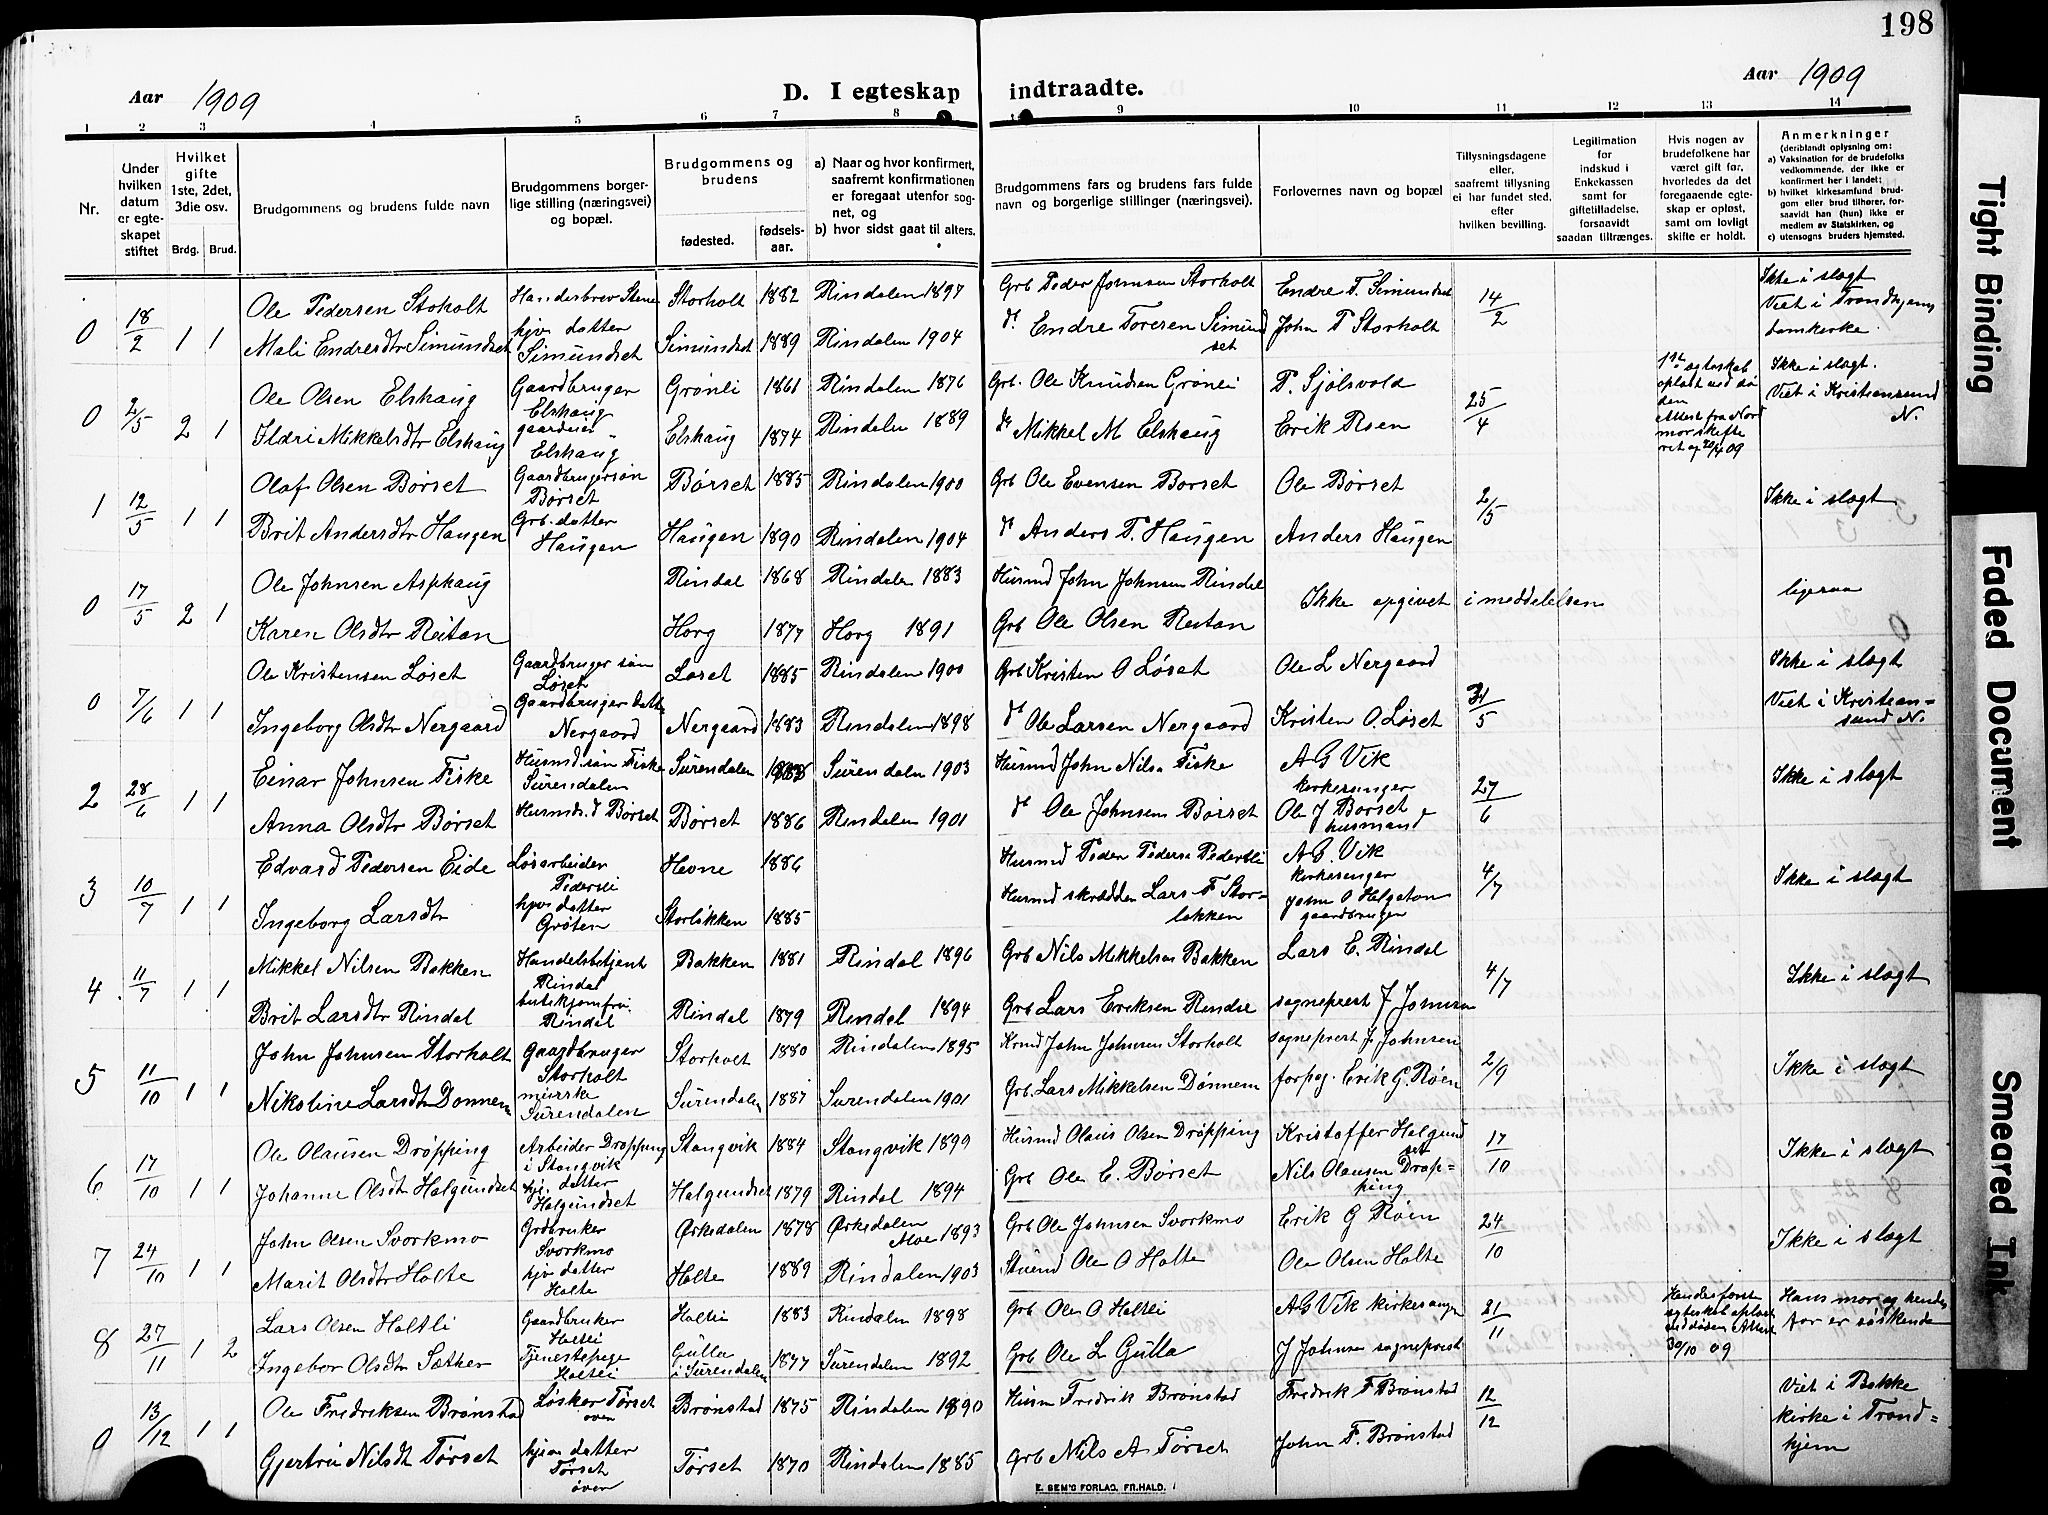 198
Aar 1909
D. I egteskap indtraadte.
Aar 1909
1 2 3 4 5 6 7 8 9 10 11 12 13 14
Nr.
Under hvilken datum er egteskapet stiftet
Hvilket gifte 1ste, 2det, 3die osv.
Brdg. Brud.
Brudgommens og brudens fulde navn
Brudgommens borgerlige stilling (næringsvei) og bopæl.
Brudgommens og brudens
fødested. fødselsaar.
a) Naar og hvor konfirmert, saafremt konfirmationen er foregaat utenfor sognet, og
b) hvor sidst gaat til alters.
Brudgommens fars og brudens fars fulde navn og borgerlige stillinger (næringsvei).
Forlovernes navn og bopæl
Tillysningsdagene eller, saafremt tillysning ei har fundet sted, efter hvilken bevilling.
Legitimation for indskud i Enkekassen samt for giftetilladelse, forsaavidt saadan tiltrænges.
Hvis nogen av brudefolkene har været gift før, hvorledes da det foregaaende egteskap er opløst, samt om lovligt skifte er holdt.
Anmerkninger (deriblandt oplysning om:
a) Vaksination for de brudefolks vedkommende, der ikke er konfirmert her i landet;
b) hvilket kirkesamfund brudgom eller brud tilhører, forsaavidt han (hun) ikke er medlem av Statskirken, og
c) utensogns bruders hjemsted.
0 18/2 1 1 Ole Pedersen Stoholt Storholt 1882 Rindalen 1897 Grb Peder Johnsen Storholt Endre T. Simundset 14/2 Ikke i slægt
Viet i Trondhjems domkirke
Mali Endresdtr Simundset hjv datter Simundset Simundset 1889 Rindalen 1904 do Endre Toresen Simundset John P Storholt
0 2/5 2 1 Ole Olsen Elshaug Gaardbruger Elshaug Grønli 1861 Rindalen 1876 Grb. Ole Knudsen Grønli P. Sjølsvold 25/4 1ste egteskab opløst ved døden Attest fra Nordmør skifteret af 20/4 09 Ikke i slægt.
Viet i Kristianssund N.
Ildri Mikkelsdtr Elshaug Elshaug Elshaug 1874 Rindalen 1889 do Mikkel M Elshaug Erik Roen
1 12/5 1 1 Olaf Olsen Børset Gaardbrugersøn Børset Børset 1885 Rindalen 1900 Grb Ole Evensen Børset Ole Børset 2/5 Ikke i slægt
Brit Andersdtr Haugen Grb. datter Haugen Haugen 1890 Rindalen 1904 do Anders P. Haugen Anders Haugen
0 17/5 2 1 Ole Johnsen Asphaug Rindal 1868 Rindalen 1883 Husmd John Johnsen Rindal Ikke opgivet i meddelelsen ligesaa
Karen Olsdtr Reitan Horg 1877 Horg 1891 Grb Ole Olsen Reitan
0 7/6 1 1 Ole Kristensen Løset Gaardbruger søn Løset Løset 1885 Rindalen 1900 Grb Kristen O Løset Ole L Nergaard 31/5 Ikke i slægt
Viet i Kristiansund N.
Ingeborg Olsdtr Nergaard Gaardbruger datt. Nergaard Nergaard 1883 Rindalen 1898 do Ole Larsen Nergaard Kristen O. Løset
2 28/6 1 1 Einar Johnsen Fiske Husmd. søn Fiske Surendalen Surendalen Surendalen 1903 Husmd John Nilsen Fiske A G Vik kirkesanger 27/6 Ikke i slægt
Anna Olsdtr Børset Husmds. d Børset Børset 1886 Rindalen 1901 do Ole Johnsen Børset Ole J Børset husmand
3 10/7 1 1 Edvard Pedersen Eide Løsarbeider Pedersli Hevne 1886 Husmd Peder Pedersen Pedersli A G. Vik kirkesanger 4/7 Ikke i slægt
Ingeborg Larsdtr hjvs datter Grøten Storløkken 1885 Husmd skrædder Lars F Storløkken John O Helgeton gaardbruger
4 11/7 1 1 Mikkel Nilsen Bakken Handelsbetjent Rindal Bakken 1881 Rindal 1896 Grb Nils Mikkelsen Bakken Lars E. Rindal 4/7 Ikke i slægt
Brit Larsdtr Rindal butikjomfru Rindal Rindal 1879 Rindal 1894 Grb Lars Eriksen Rindal sogneprest J Johnsen
5 11/10 1 1 John Johnsen Storholt Gaardbruger Storholt Storholt 1880 Rindalen 1895 John Johnsen Storholt sogneprest J. Johnsen 2/9 Ikke i slægt
Nikoline Larsdtr Dønnem meierske Surendalen Surendalen 1887 Surendalen 1901 Grb. Lars Mikkelsen Dønnem forpag. Erik G. Røen
6 17/10 1 1 Ole Olausen Drøpping Arbeider Drøpping i Stangvik Stangvik 1884 Stangvik 1899 Husmd Olaus Olsen Drøpping Kristoffer Halgundset 17/10 Ikke i slægt
Johanne Olsdt Halgundset hjv. datter Halgundset Halgundset 1879 Rindal 1894 Grb Ole E. Børset Nils Olausen Drøpping
7 24/10 1 1 John Olsen Svorkmo Grdbruker Svorkmo Ørkedalen 1878 Ørkedalen Moe 1893 Grb Ole Johnsen Svorkmo Erik G Røen 24/10 Ikke i slægt
Marit Olsdtr Holte hjv datter Holte Holte 1889 Rindalen 1903 Ole O Holte Ole Olsen Holte
8 27/11 1 2 Lars Olsen Holtli Gaardbruker Holtli Holtli 1883 Rindalen 1898 Grb Ole O Holtli A G Vik kirkesanger 21/11 Hendes første egteskab opløst ved døden Attest 30/10 09 Hans mor og hendes far er søskende
Ingebor Olsdtr Sæther Tjenestepige Holtli Gulla i Surendalen 1877 Surendalen 1892 Grb Ole L Gulla J Johnsen sogneprest
9 13/12 1 1 Ole Fredriksen Brønstad Tørset øvre Brønstad 1875 Rindalen 1890 Husm Fredrik Brønstad Fredrik F Brønstad 12/12 Viet i Bakke kirke i Trondhjem
Gjertru Nilsdt Tørset hjem datter Tørset øvre Tørset 1870 Rindalen 1885 Grb Nils A Tørset John F. Brønstad
E. SEM'S FORLAG, FR.HALD.
Tight Binding
Faded Document
Smeared Ink